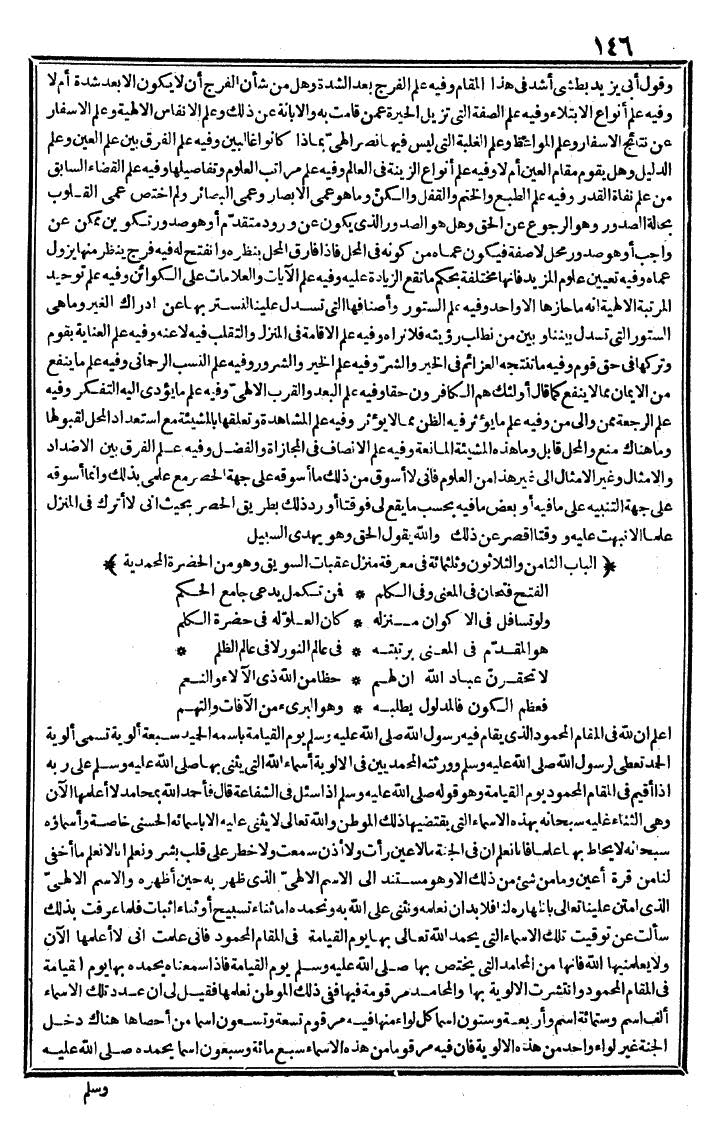 ١٤٦
وقول أبي يزيد بطشي أشد في هذا المقام وفيه علم الفرج بعد الشدة وهل من شأن الفرج أن لا يكون الا بعد شدة أم لا
وفيه علم أنواع الابتلاء وفيه علم الصفة التي تزيل الحيرة عمن قامت به والابانة عن ذلك وعلم الانفاس الالهية وعلم الاسفار
عن نتائج الاسفار وعلم المواعظ وعلم الغلبة التي ليس فيها نصر الهيّ بماذا كانوا غالبين وفيه علم الفرق بين علم العين وعلم
الدليل وهل يقوم مقام العين أم لا وفيه علم أنواع الزينة في العالم وفيه علم مراتب العلوم وتفاصيلها وفيه علم القضاء السابق
من علم نفاة القدر وفيه علم الطبع والختم والقفل والكنّ وما هو عمى الابصار وعمى البصائر ولم اختص عمى القلوب
بحالة الصدور وهو الرجوع عن الحق وهل هو الصدور الذي يكون عن ورود متقدّم أو هو صدور تكوين ممكن عن
واجب أو هو صدور محل لا صفة فيكون عماه من كونه في المحل فاذا فارق المحل بنظره وانفتح له فيه فرج ينظر منها يزول
عماه وفيه تعيين علوم المزيد فانها مختلفة بحكم ما تقع الزيادة عليه وفيه علم الآيات والعلامات على الكوائن وفيه علم توحيد
المرتبة الالهية انه ما حازها الا واحد وفيه علم الستور وأصنافها التي تسدل علينا لنستر بها عن ادراك الغير وما هي
الستور التي تسدل بيننا وبين من نطلب رؤيته فلا نراه وفيه علم الاقامة في المنزل والتقلب فيه لا عنه وفيه علم العناية بقوم
وتركها في حق قوم وفيه ما تنتجه العزائم في الخير والشرّ وفيه علم الخير والشرور وفيه علم النسب الرحماني وفيه علم ما ينفع
من الايمان مما لا ينفع كما قال أولئك هم الكافرون حقا وفيه علم البعد والقرب الالهيّ وفيه علم ما يؤدى اليه التفكر وفيه
علم الرجعة ممن والى من وفيه علم ما يؤثر فيه الظن مما لا يؤثر وفيه علم المشاهدة وتعلقها بالمشيئة مع استعداد المحل لقبولها
وما هناك منع والمحل قابل وما هذه المشيئة المانعة وفيه علم الانصاف في المجازاة والفضل وفيه علم الفرق بين الاضداد
والامثال وغير الامثال الى غير هذا من العلوم فاني لا أسوق من ذلك ما أسوقه على جهة الحصر مع علمي بذلك وانما أسوقه
على جهة التنبيه على ما فيه أو بعض ما فيه بحسب ما يقع لي فوقتا أورد ذلك بطريق الحصر بحيث اني لا أترك في المنزل
علما الا نبهت عليه ووقتا اقصر عن ذلك والله يقول الحق وهو يهدي السبيل
﴿ الباب الثامن والثلاثون وثلثمائة في معرفة منزل عقبات السويق وهو من الحضرة المحمدية ﴾
الفتح فتحان في المعنى وفي الكلم * فمن تكمل يدعى جامع الحكم
ولو تسافل في الاكوان منزله * كان العلوّ له في حضرة الكلم
هو المقدّم في المعنى برتبته * في عالم النور لا في عالم الظلم *
لا تحقرنّ عباد الله ان لهم * حظا من الله ذي الآلاء والنعم
فعظم الكون فالمدلول يطلبه * وهو البرىء من الآفات والتهم
اعلم ان لله في المقام المحمود الذي يقام فيه رسول الله صلى الله عليه وسلم يوم القيامة باسمه الحميد سبعة ألوية تسمى ألوية
الحمد تعطى لرسول الله صلى الله عليه وسلم وورثته المحمديين في الالوية أسماء الله التي يثنى بها صلى الله عليه وسلم على ربه
اذا أقيم في المقام المحمود يوم القيامة وهو قوله صلى الله عليه وسلم اذا سئل في الشفاعة قال فأحمد الله بمحامد لا أعلمها الآن
وهي الثناء عليه سبحانه بهذه الاسماء التي يقتضيها ذلك الموطن والله تعالى لا يثنى عليه الا باسمائه الحسنى خاصة وأسماؤه
سبحانه لا يحاط بها علما فانا نعلم ان في الجنة ما لا عين رأت ولا أذن سمعت ولا خطر على قلب بشر ونعلم انا لا نعلم ما أخفى
لنا من قرة أعين وما من شئ من ذلك الا وهو مستند الى الاسم الالهيّ الذي ظهر به حين أظهره والاسم الالهيّ
الذي امتن علينا تعالى باظهاره لنا فلا بد ان نعلمه ونثنى على الله به ونحمده اما ثناء تسبيح أو ثناء اثبات فلما عرفت بذلك
سألت عن توقيت تلك الاسماء التي يحمد الله تعالى بها يوم القيامة في المقام المحمود فاني علمت اني لا أعلمها الآن
ولا يعلمنيها الله فانها من المحامد التي يختص بها صلى الله عليه وسلم يوم القيامة فاذا سمعناه يحمده بها يوم القيامة
في المقام المحمود وانتشرت الالوية بها والمحامد مرقومة فيها في ذلك الموطن نعلمها فقيل لي ان عدد تلك الاسماء
ألف اسم وستمائة اسم وأربعة وستون اسما كل لواء منها فيه مرقوم تسعة وتسعون اسما من أحصاها هناك دخل
الجنة غير لواء واحد من هذه الالوية فان فيه مرقوما من هذه الاسماء سبع مائة وسبعون اسما يحمده صلى الله عليه
وسلم